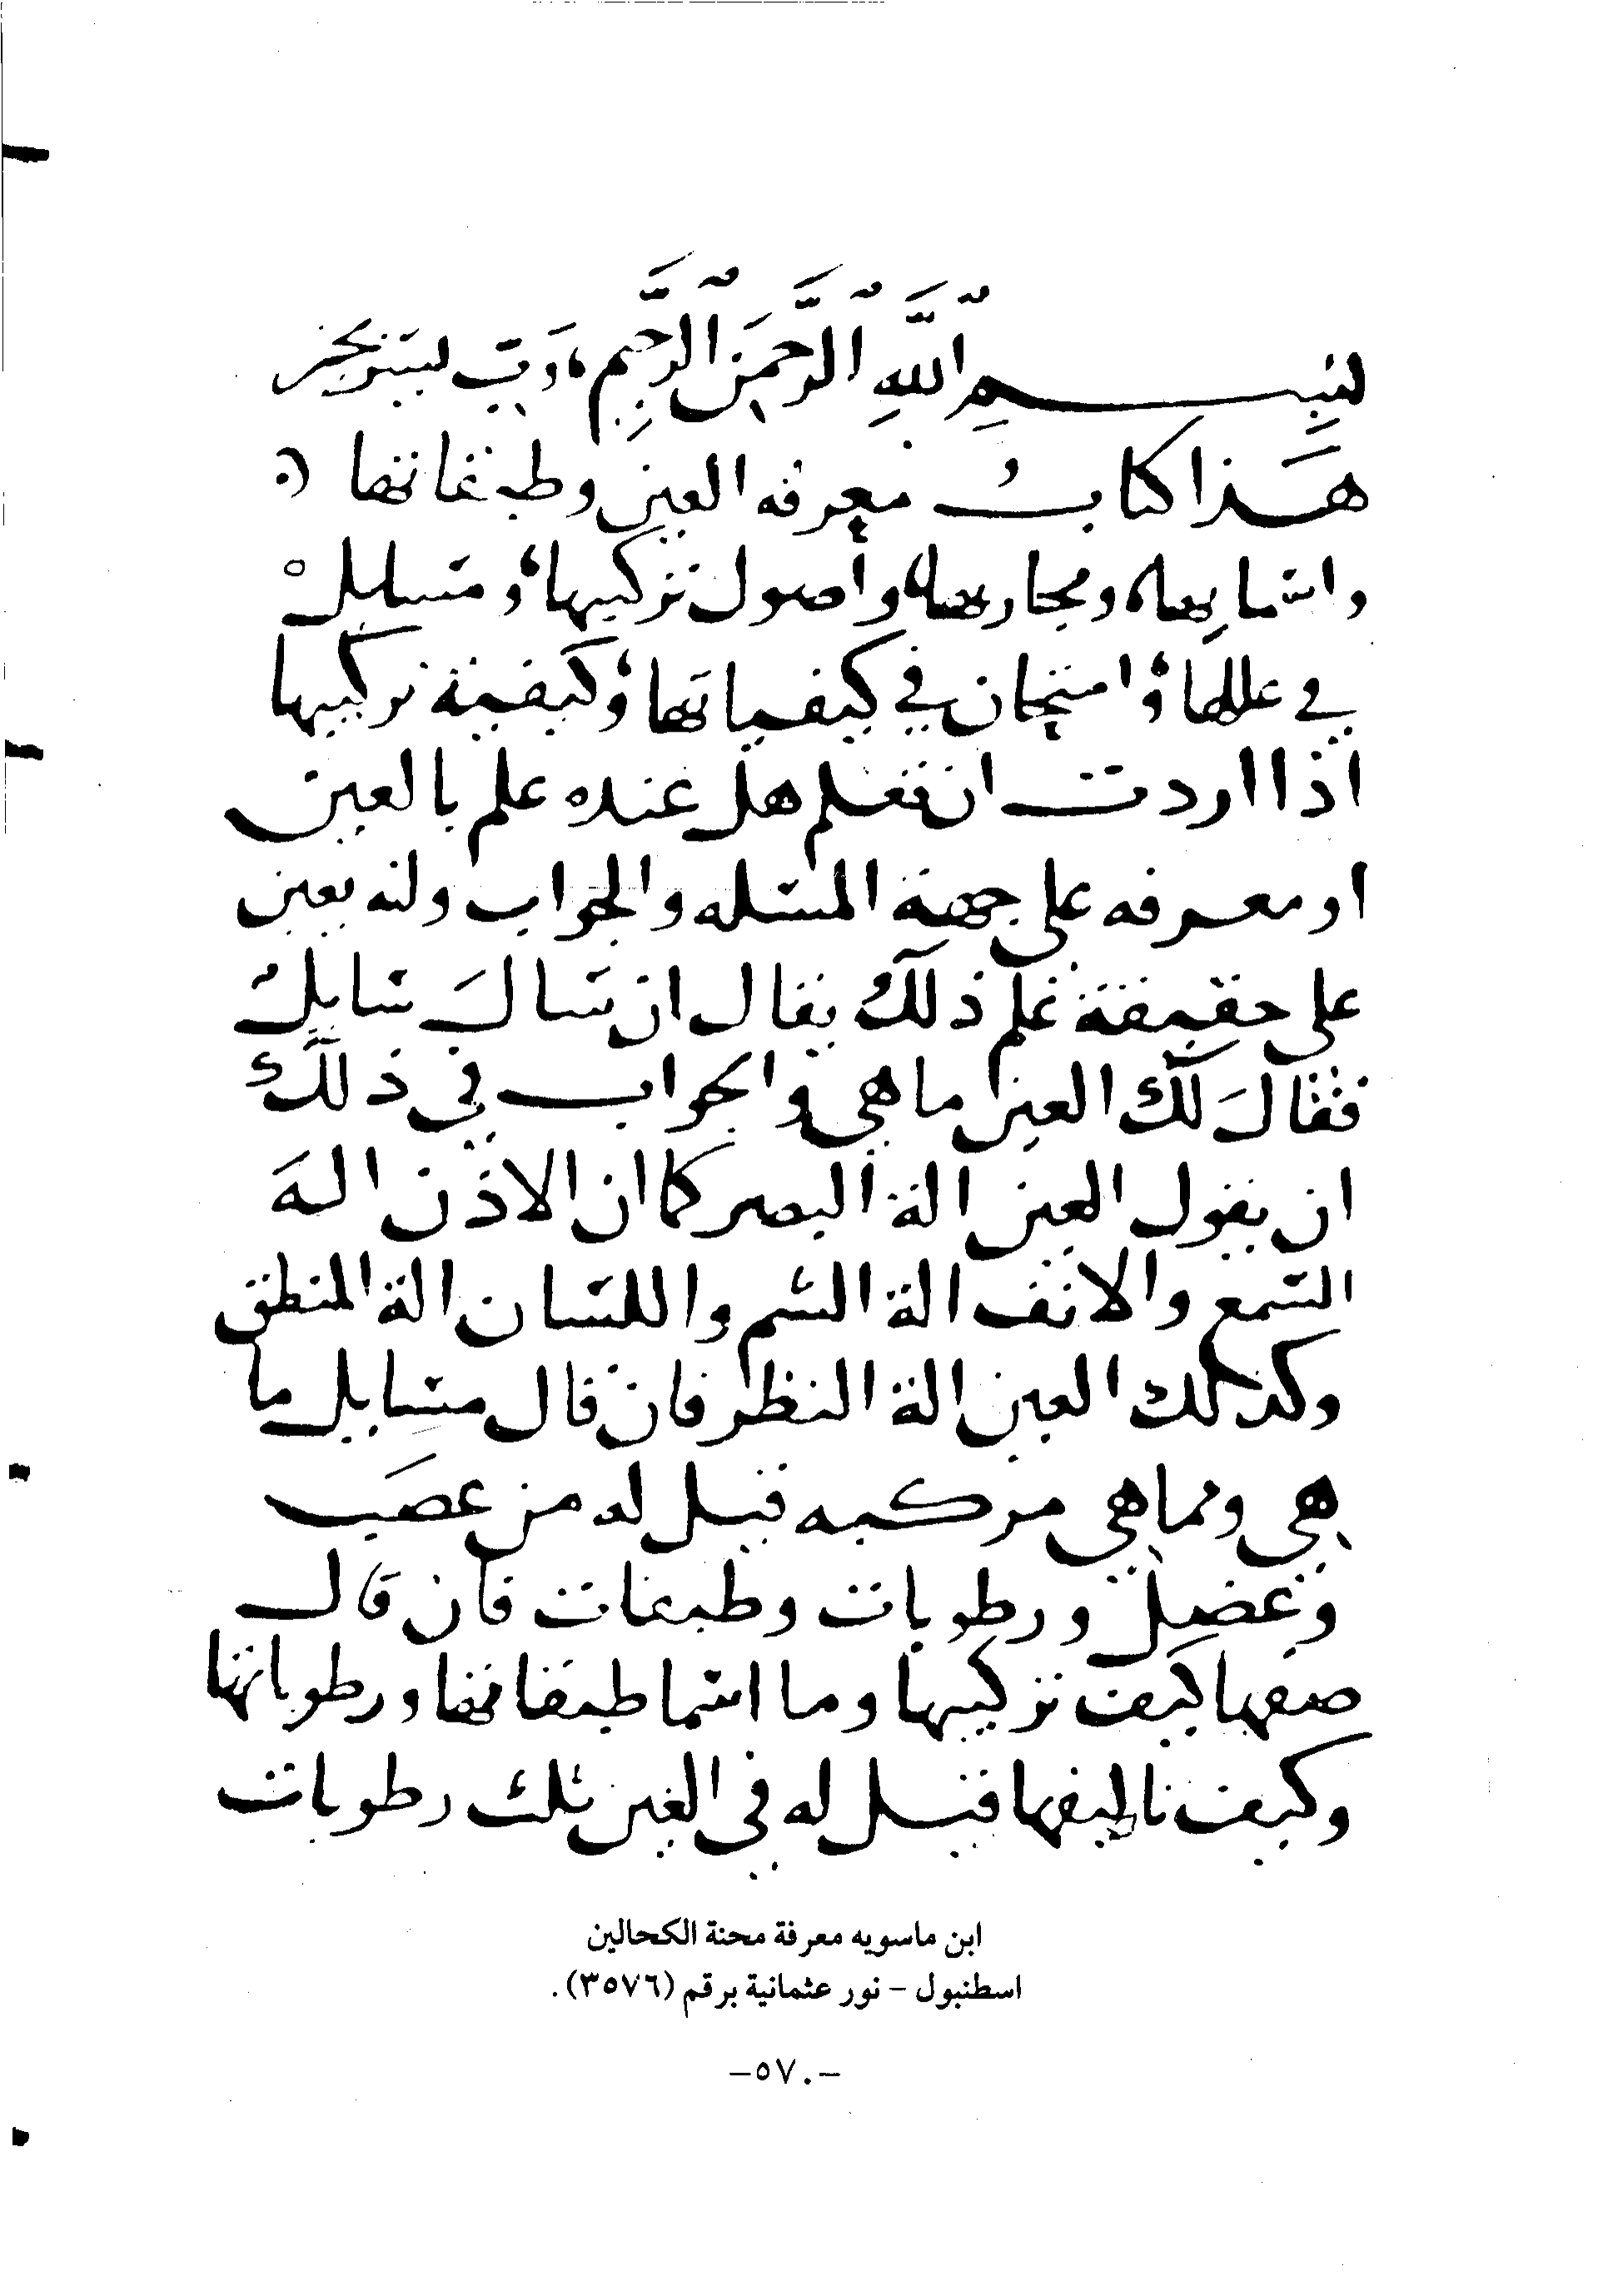 بِسْمِ اللَّهِ الرَّحْمَنِ الرَّحِيمِ، رَبِّ يسر بخير
هَذا كتابُ معرفه العين وطبقاتها
واسمايها، ومجاريها، وأصول تركيبها، ومسايل
في عللها، وامتحان في كيفياتها، وكيفية تركيبها
اذا اردت ان تعلم هل عنده علم بالعين
او معرفه على جهة المسئله والجواب وانه يعين
على حقيقة علم ذلك يقال ان سالَ سايلٌ
فقالَ لك العين ما هي والجواب في ذلك
ان يقول العين الة البصر كما ان الاذن الة
السمع والانف الة الشم واللسان الة المنطق
وكذلك العين الة النظر فان قال سايل ما
هي ومما هي مركبه قيل له من عصَب
وعضل ورطوبات وطبقات فان قال
صفها كيف تركيبها وما اسما طبقاتها ورطوباتها
وكيف تاليفها قيل له في العين ثلث رطوبات
ابن ماسويه معرفة محنة الكحالين
اسطنبول - نور عثمانية برقم (٣٥٧٦).
-٥٧٠-